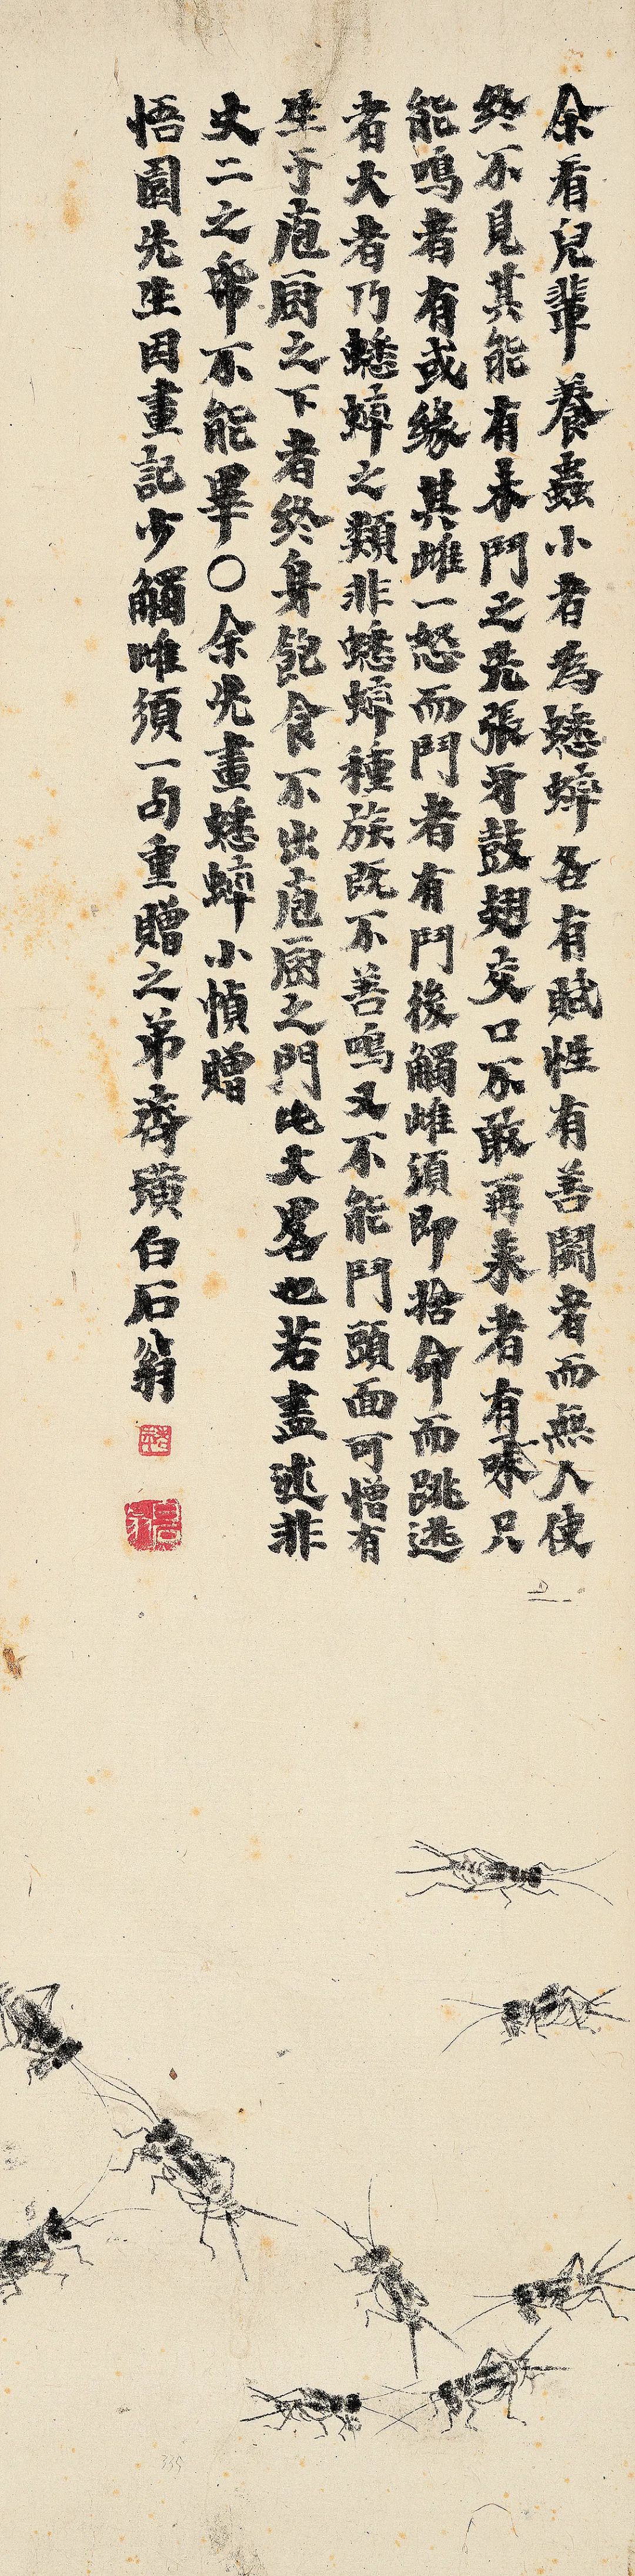 余看兒輩養蟲小者為蟋蟀各有賦性有善鬭者而無人使
終不見其能有未鬥之先張牙鼓翅交口不敢再來者有味只
能鳴者有或緣其雌一怒而鬥者有鬥後觸雌須即捨命而跳逃
者大者乃蟋蟀之類非蟋蟀種族既不善鳴又不能鬥頭面可憎有
生于庖厨之下者終身飽食不出庖厨之門此大畧也若盡述非
丈二之帋不能畢〇余先畫蟋蟀小幀贈
悟園先生因畫記少觸雌須一句重贈之弟齊璜白石翁